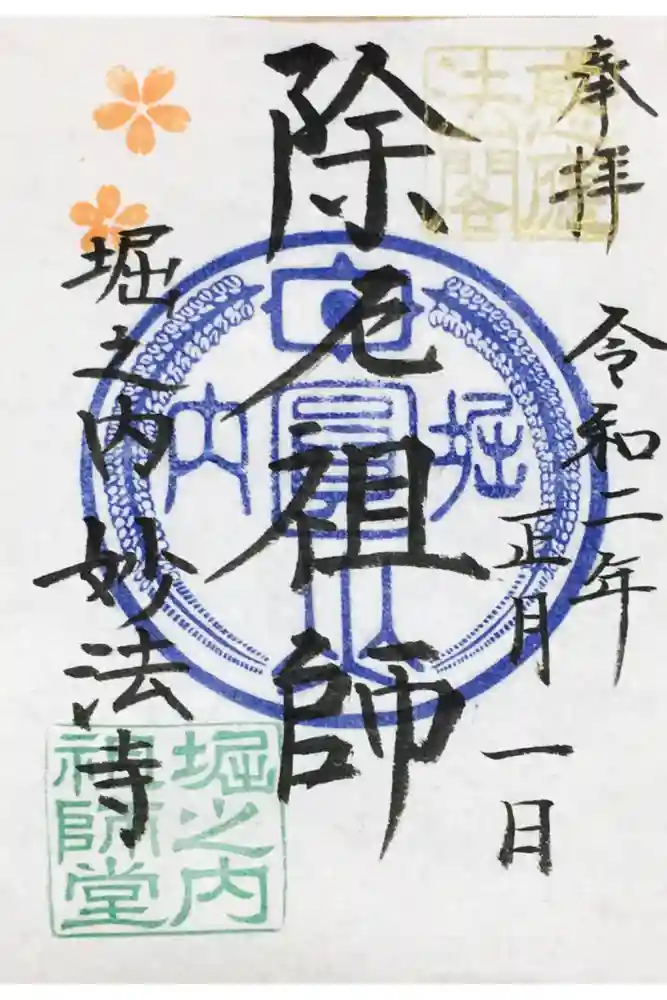 奉拝
令和二年
正月
一日
除厄祖師
堀之内 妙法寺
堀
内
堀之内
祖師堂
法閣